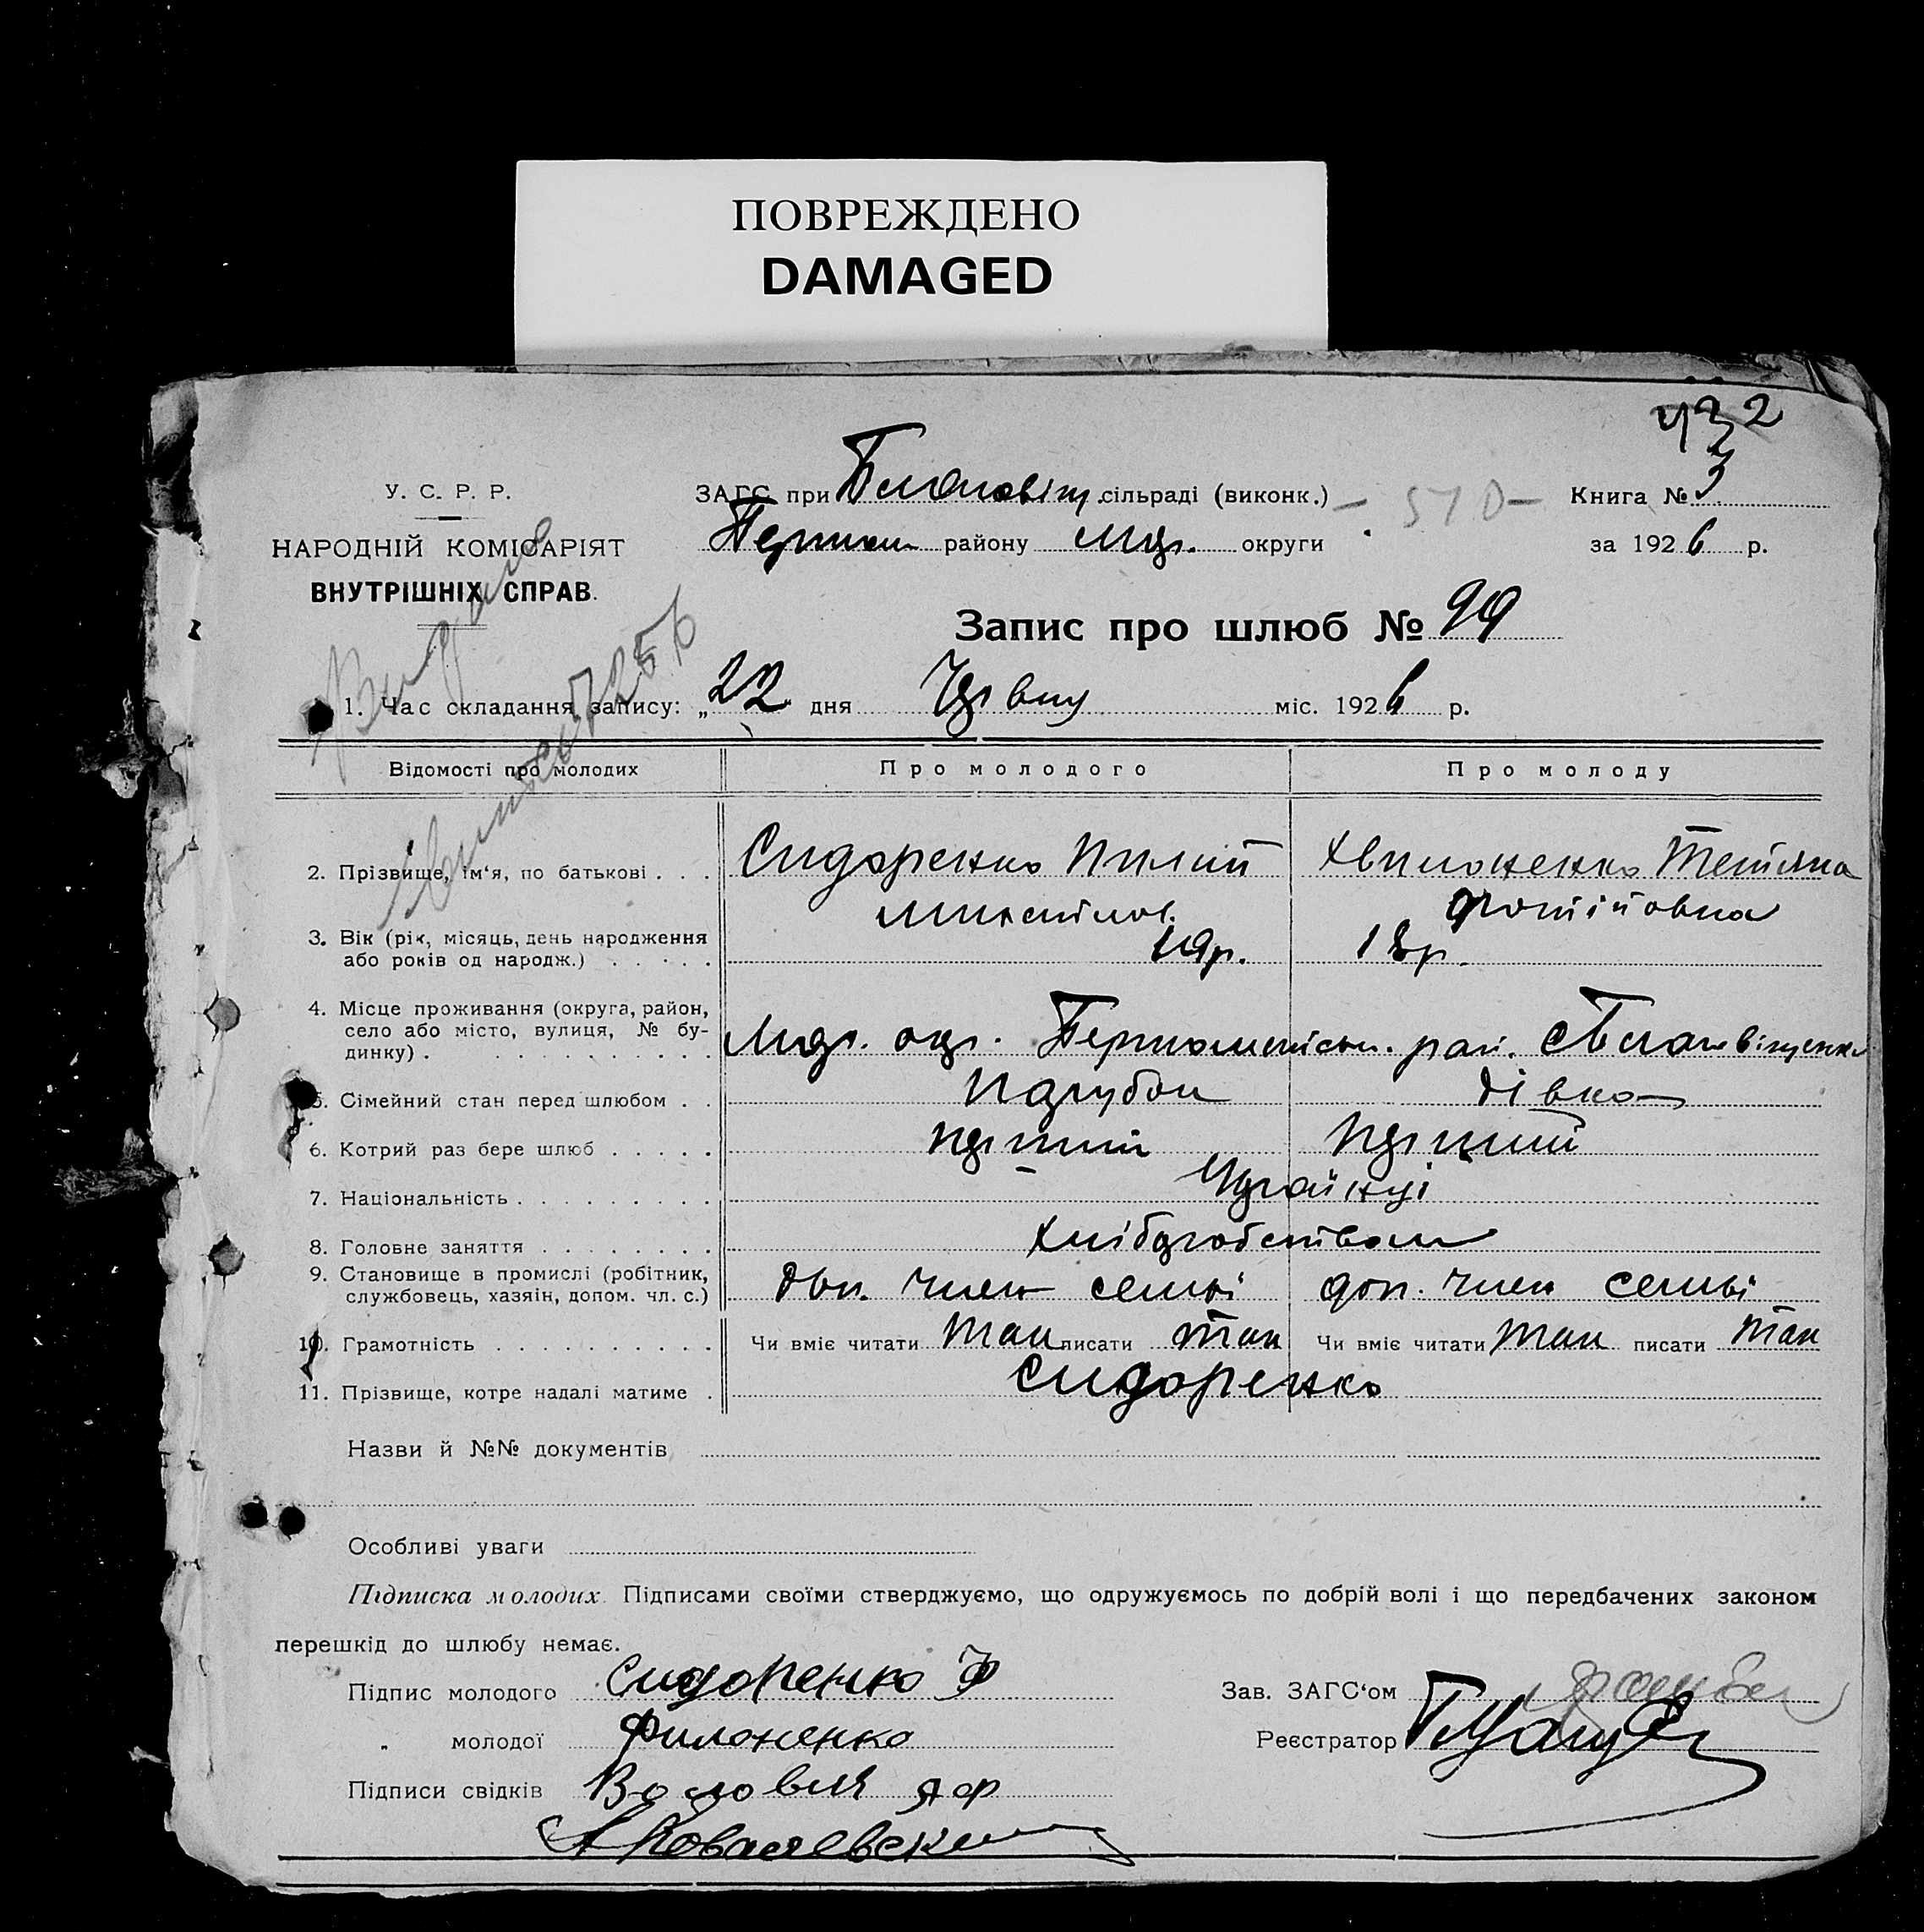 ПОВРЕЖДЕНО
DAMAGED
432
У. С. Р. Р.
НАРОДНІЙ КОМІСАРІЯТ
ВНУТРІШНІХ СПРАВ.
ЗАГС при сільраді (виконк.) - 510 - Книга № 3
району округи за 1926 р.
Запис про шлюб № 99
1. Час складання запису: „22" дня міс. 1926 р.
Видано
Відомості про молодих
Про молодого
Про молоду
2. Прізвище, ім‘я, по батькові . . . Сидоренко Пилип Хвилоненко Тетяна
3. Вік (рік, місяць, день народження або років од народж.) . . . . . 19р. 18р.
4. Місце проживання (округа, район,
село або місто, вулиця, № бу-
динку) . . . . . . . . . . .
5. Сімейний стан перед шлюбом . . Парубок Дівка
6. Котрий раз бере шлюб . . . . . перший перший
7. Національність . . . . . . . . Українці
8. Головне заняття . . . . . . . . Хліборобством
9. Становище в промислі (робітник,
службовець, хазяін, допом. чл. с.) доп. член семьі доп. член семьі
10. Грамотність . . . . . . . . . . Чи вміє читати так писати так Чи вміє читати так писати так
11. Прізвище, котре надалі матиме . Сидоренко
Назви й №№ документів
Особливі уваги
Підписка молодих. Підписами своїми стверджуємо, що одружуємось по добрій волі і що передбачених законом
перешкід до шлюбу немає.
Підпис молодого Сидоренко Ф Зав. ЗАГС‘ом
„ молодої Филоненко Реєстратор
Підписи свідків